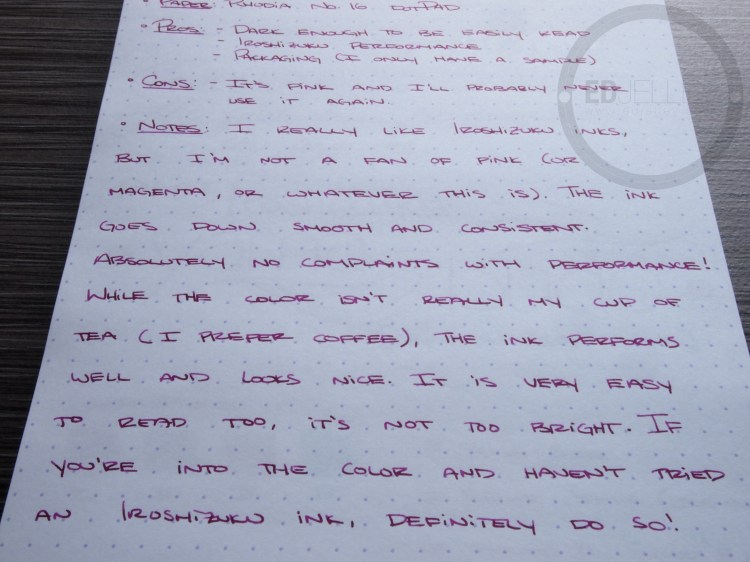 • PAPER: RHODIA No. 16 DOTPAD
• PROS: - DARK ENOUGH TO BE EASILY READ
- IROSHIZUKU PERFORMANCE
- PACKAGING (I ONLY HAVE A SAMPLE)
• CONS: - IT'S PINK AND I'LL PROBABLY NEVER
USE IT AGAIN.
• NOTES: I REALLY LIKE IROSHIZUKU INKS,
BUT I'M NOT A FAN OF PINK (OR
MAGENTA, OR WHATEVER THIS IS). THE INK
GOES DOWN SMOOTH AND CONSISTENT.
ABSOLUTELY NO COMPLAINTS WITH PERFORMANCE!
WHILE THE COLOR ISN'T REALLY MY CUP OF
TEA (I PREFER COFFEE), THE INK PERFORMS
WELL AND LOOKS NICE. IT IS VERY EASY
TO READ TOO, IT'S NOT TOO BRIGHT. IF
YOU'RE INTO THE COLOR AND HAVEN'T TRIED
AN IROSHIZUKU INK, DEFINITELY DO SO!
EDJELLEY